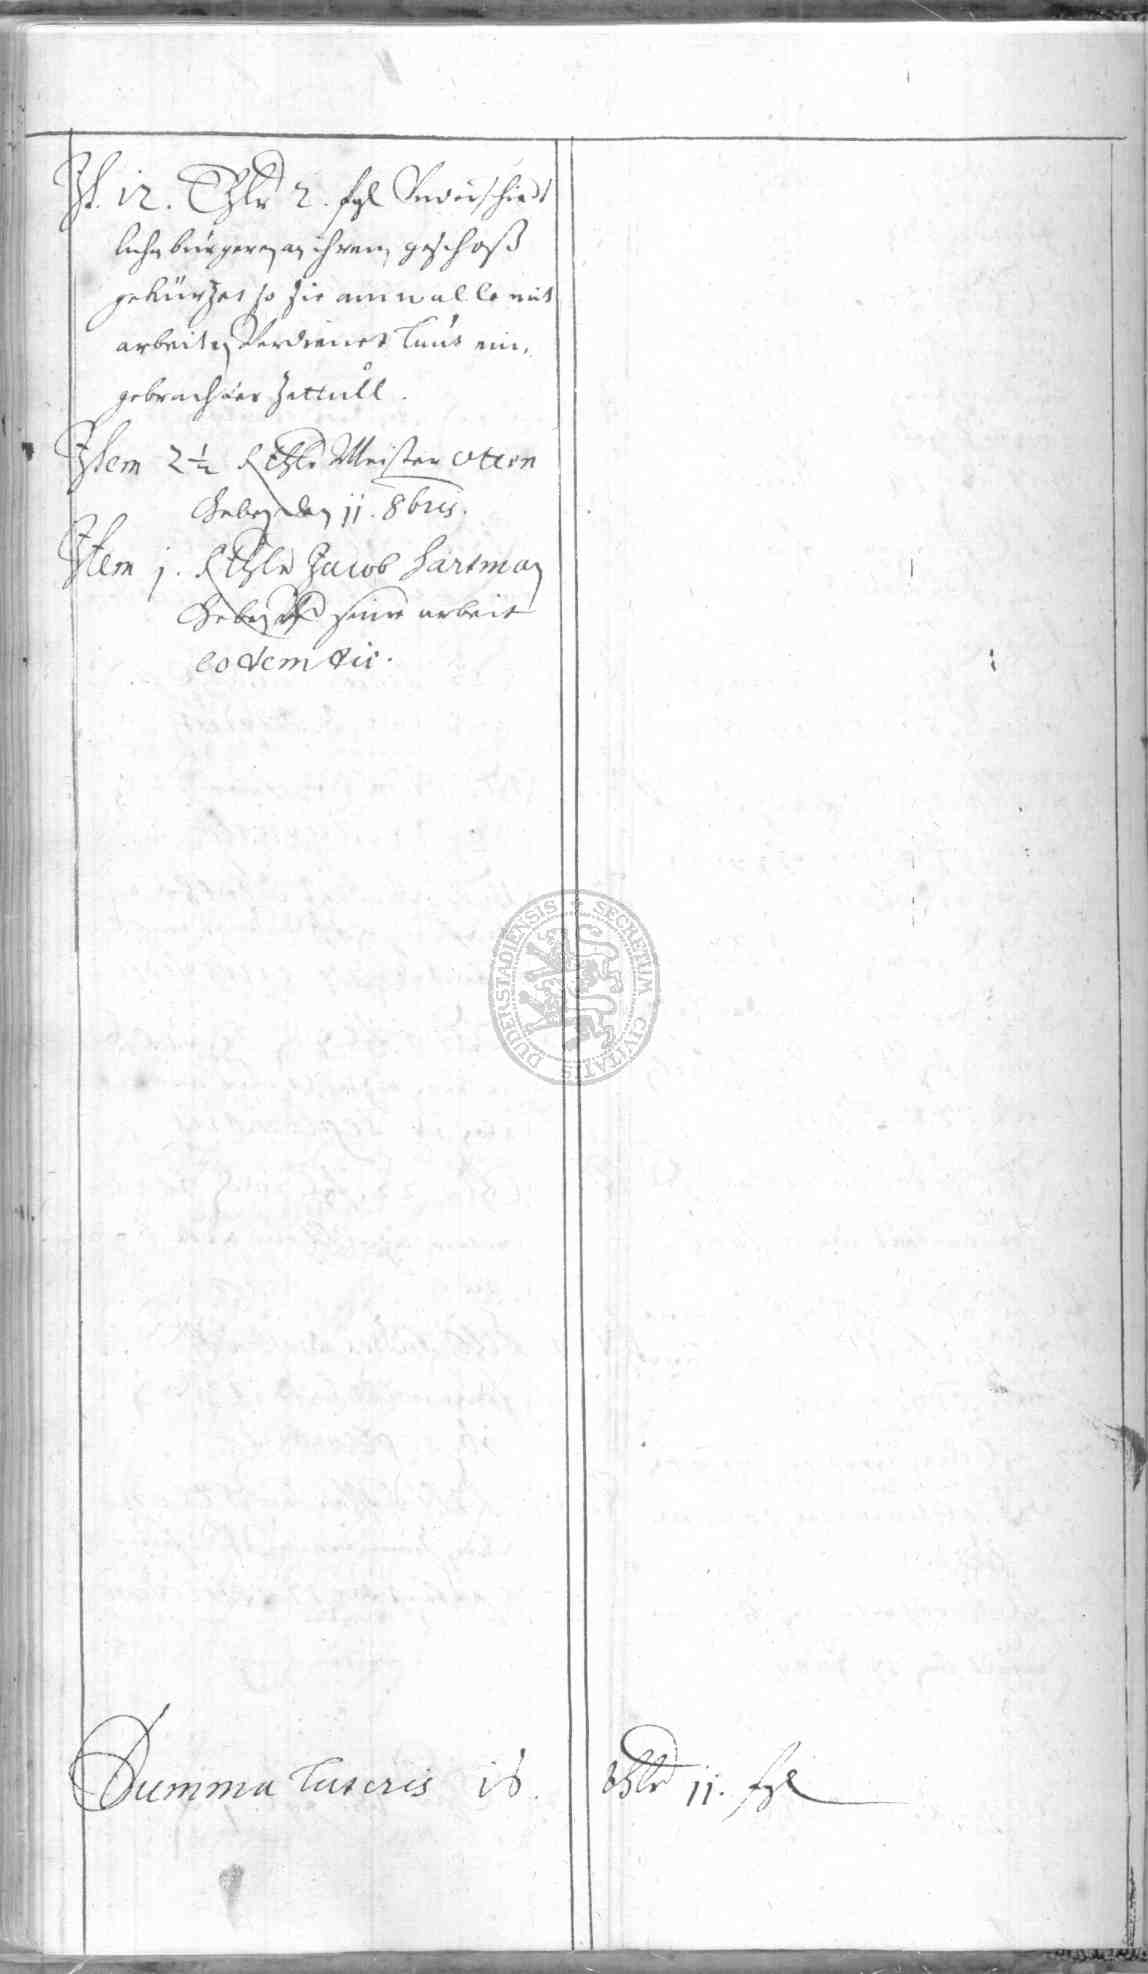 It. 12. Thlr 2. fgl Unterschiedt
lichn bürgeren an ihrem geschoß
gekürzet so sie am walle mit
arbeiten Verdienet Laut ein,
gebrachter Zettull.
Item 2½ Rthlr Meister Otten
Geben den 11. 8bris.
Item 1. Rthlr Jacob Hartman
Geben seine arbeit
eodem die.
DUDERSTADIENSIS SECRETUM CIVITATIS
Summa Lateris 16. thlr 11. fgl